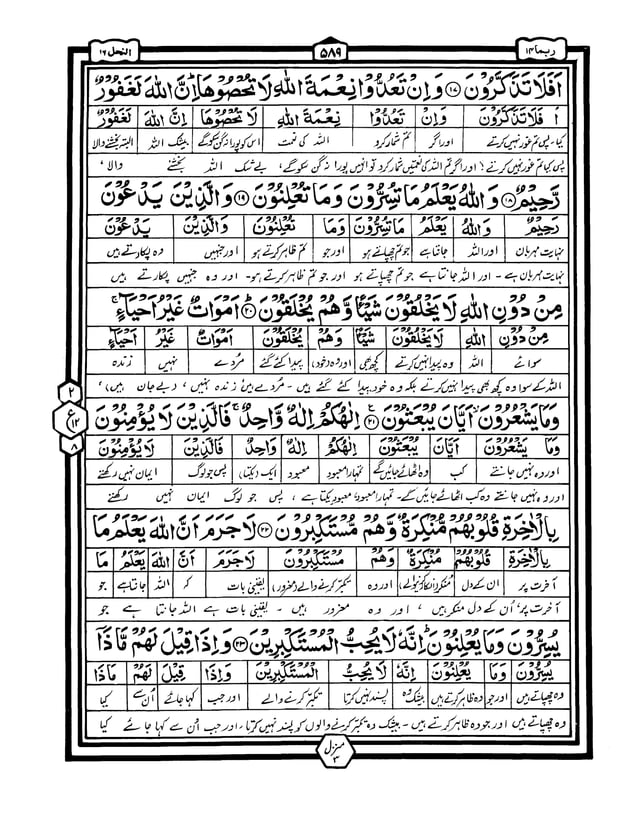 ربما ۱۴
۵۸۹
النحل ۱۶
اَفَلَا تَذَكَّرُوْنَ ﴿۱۷﴾ وَاِنْ تَعُدُّوْا نِعْمَةَ اللّٰهِ لَا تُحْصُوْهَا ؕ اِنَّ اللّٰهَ لَغَفُوْرٌ
اَ فَلَا تَذَكَّرُوْنَ وَاِنْ تَعُدُّوْا نِعْمَةَ اللّٰهِ لَا تُحْصُوْهَا اِنَّ اللّٰهَ لَغَفُوْرٌ
کیا۔ پس تم غور نہیں کرتے اور اگر تم شمار کرو اللہ کی نعمت اس کو پورا نہ گن سکو گے بیشک اللہ البتہ بخشنے والا
پس کیا تم غور نہیں کرتے؟ اور اگر تم اللہ کی نعمتیں شمار کرو تو انہیں پورا نہ گن سکو گے، بے شک اللہ بخشنے والا،
رَّحِيْمٌ ﴿۱۸﴾ وَاللّٰهُ يَعْلَمُ مَا تُسِرُّوْنَ وَمَا تُعْلِنُوْنَ ﴿۱۹﴾ وَالَّذِيْنَ يَدْعُوْنَ
رَّحِيْمٌ وَاللّٰهُ يَعْلَمُ مَا تُسِرُّوْنَ وَمَا تُعْلِنُوْنَ وَالَّذِيْنَ يَدْعُوْنَ
نہایت مہربان اور اللہ جانتا ہے جو تم چھپاتے ہو اور جو تم ظاہر کرتے ہو اور جنہیں وہ پکارتے ہیں
نہایت مہربان ہے۔ اور اللہ جانتا ہے جو تم چھپاتے ہو اور جو تم ظاہر کرتے ہو۔ اور وہ جنہیں پکارتے ہیں
مِنْ دُوْنِ اللّٰهِ لَا يَخْلُقُوْنَ شَيْـًٔا وَّهُمْ يُخْلَقُوْنَ ﴿۲۰﴾ اَمْوَاتٌ غَيْرُ اَحْيَآءٍ ۚ
مِنْ دُوْنِ اللّٰهِ لَا يَخْلُقُوْنَ شَيْـًٔا وَّهُمْ يُخْلَقُوْنَ اَمْوَاتٌ غَيْرُ اَحْيَآءٍ
سوائے اللہ وہ پیدا نہیں کرتے کچھ بھی اور وہ (خود) پیدا کئے گئے مُردے نہیں زندہ
اللہ کے سوا وہ کچھ بھی پیدا نہیں کرتے بلکہ وہ خود پیدا کئے گئے ہیں۔ مُردے ہیں زندہ نہیں، (بے جان ہیں)،
وَمَا يَشْعُرُوْنَ اَيَّانَ يُبْعَثُوْنَ ﴿۲۱﴾ اِلٰهُكُمْ اِلٰهٌ وَّاحِدٌ ۚ فَالَّذِيْنَ لَا يُؤْمِنُوْنَ
وَمَا يَشْعُرُوْنَ اَيَّانَ يُبْعَثُوْنَ اِلٰهُكُمْ اِلٰهٌ وَاحِدٌ فَالَّذِيْنَ لَا يُؤْمِنُوْنَ
اور وہ نہیں جانتے کب وہ اٹھائے جائیں گے تمہارا معبود معبود ایک (یکتا) پس جو لوگ ایمان نہیں رکھتے
اور وہ نہیں جانتے وہ کب اٹھائے جائیں گے۔ تمہارا معبود، معبود یکتا ہے، پس جو لوگ ایمان نہیں رکھتے
۲
ع ۱۲
۸
بِالْاٰخِرَةِ قُلُوْبُهُمْ مُّنْكِرَةٌ وَّهُمْ مُّسْتَكْبِرُوْنَ ﴿۲۲﴾ لَا جَرَمَ اَنَّ اللّٰهَ يَعْلَمُ مَا
بِالْاٰخِرَةِ قُلُوْبُهُمْ مُّنْكِرَةٌ وَّهُمْ مُّسْتَكْبِرُوْنَ لَا جَرَمَ اَنَّ اللّٰهَ يَعْلَمُ مَا
آخرت پر ان کے دل منکر (انکار کرنیوالے) اور وہ تکبر کرنے والے (مغرور) یقینی بات کہ اللہ جانتا ہے جو
آخرت پر، اُن کے دل منکر ہیں، اور وہ مغرور ہیں۔ یقینی بات ہے اللہ جانتا ہے جو
يُسِرُّوْنَ وَمَا يُعْلِنُوْنَ ؕ اِنَّهٗ لَا يُحِبُّ الْمُسْتَكْبِرِيْنَ ﴿۲۳﴾ وَاِذَا قِيْلَ لَهُمْ مَّاذَآ
يُسِرُّوْنَ وَمَا يُعْلِنُوْنَ اِنَّهٗ لَا يُحِبُّ الْمُسْتَكْبِرِيْنَ وَاِذَا قِيْلَ لَهُمْ مَاذَا
وہ چھپاتے ہیں اور جو وہ ظاہر کرتے ہیں بیشک وہ پسند نہیں کرتا تکبر کرنے والے اور جب کہا جائے اُن سے کیا
وہ چھپاتے ہیں اور جو وہ ظاہر کرتے ہیں۔ بیشک وہ تکبر کرنے والوں کو پسند نہیں کرتا، اور جب اُن سے کہا جائے کیا
منزل ۳